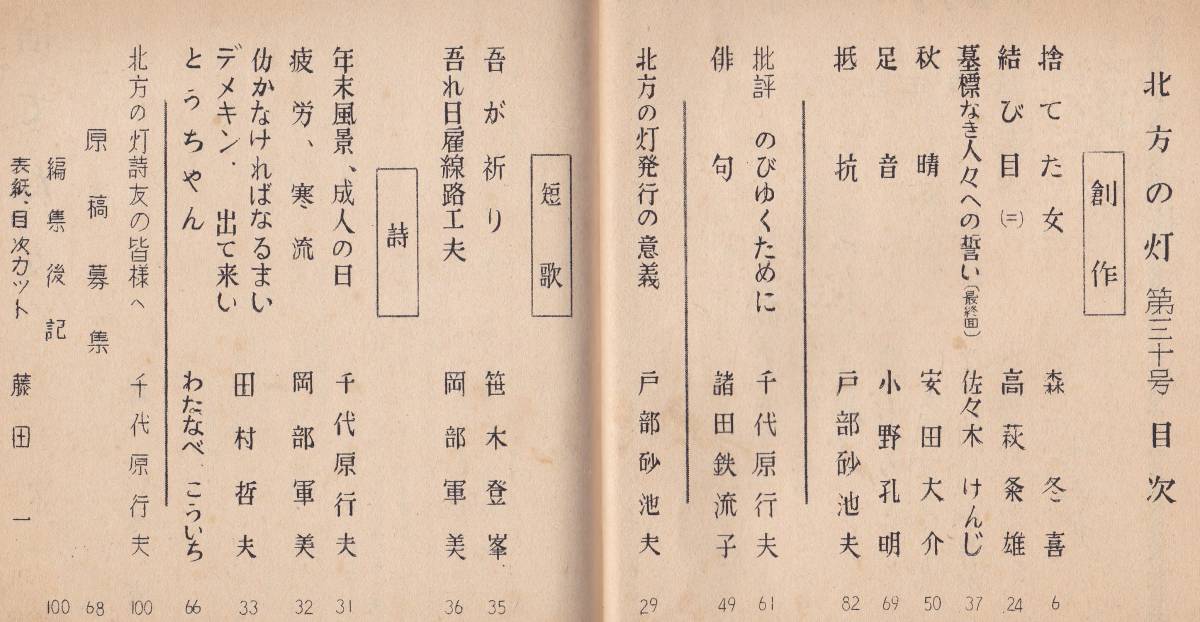 北方の灯 第三十号 目次
創作
捨てた女 森 冬喜 6
結び目(二) 高萩粂雄 24
墓標なき人々への誓い(最終回) 佐々木けんじ 37
秋晴 安田大介 50
足音 小野孔明 69
抵抗 戸部砂池夫 82
批評 のびゆくために 千代原行夫 61
俳句 諸田鉄流子 49
北方の灯発行の意義 戸部砂池夫 29
短歌
吾が祈り 笹木登峯 35
吾れ日雇線路工夫 岡部軍美 36
詩
年末風景、成人の日 千代原行夫 31
疲労、寒流 岡部軍美 32
仂かなければなるまい
デメキン、出て来い 田村哲夫 33
とうちゃん わたなべ こういち 66
北方の灯詩友の皆様へ 千代原行夫 100
原稿募集 68
編集後記 100
表紙、目次カット 藤田一